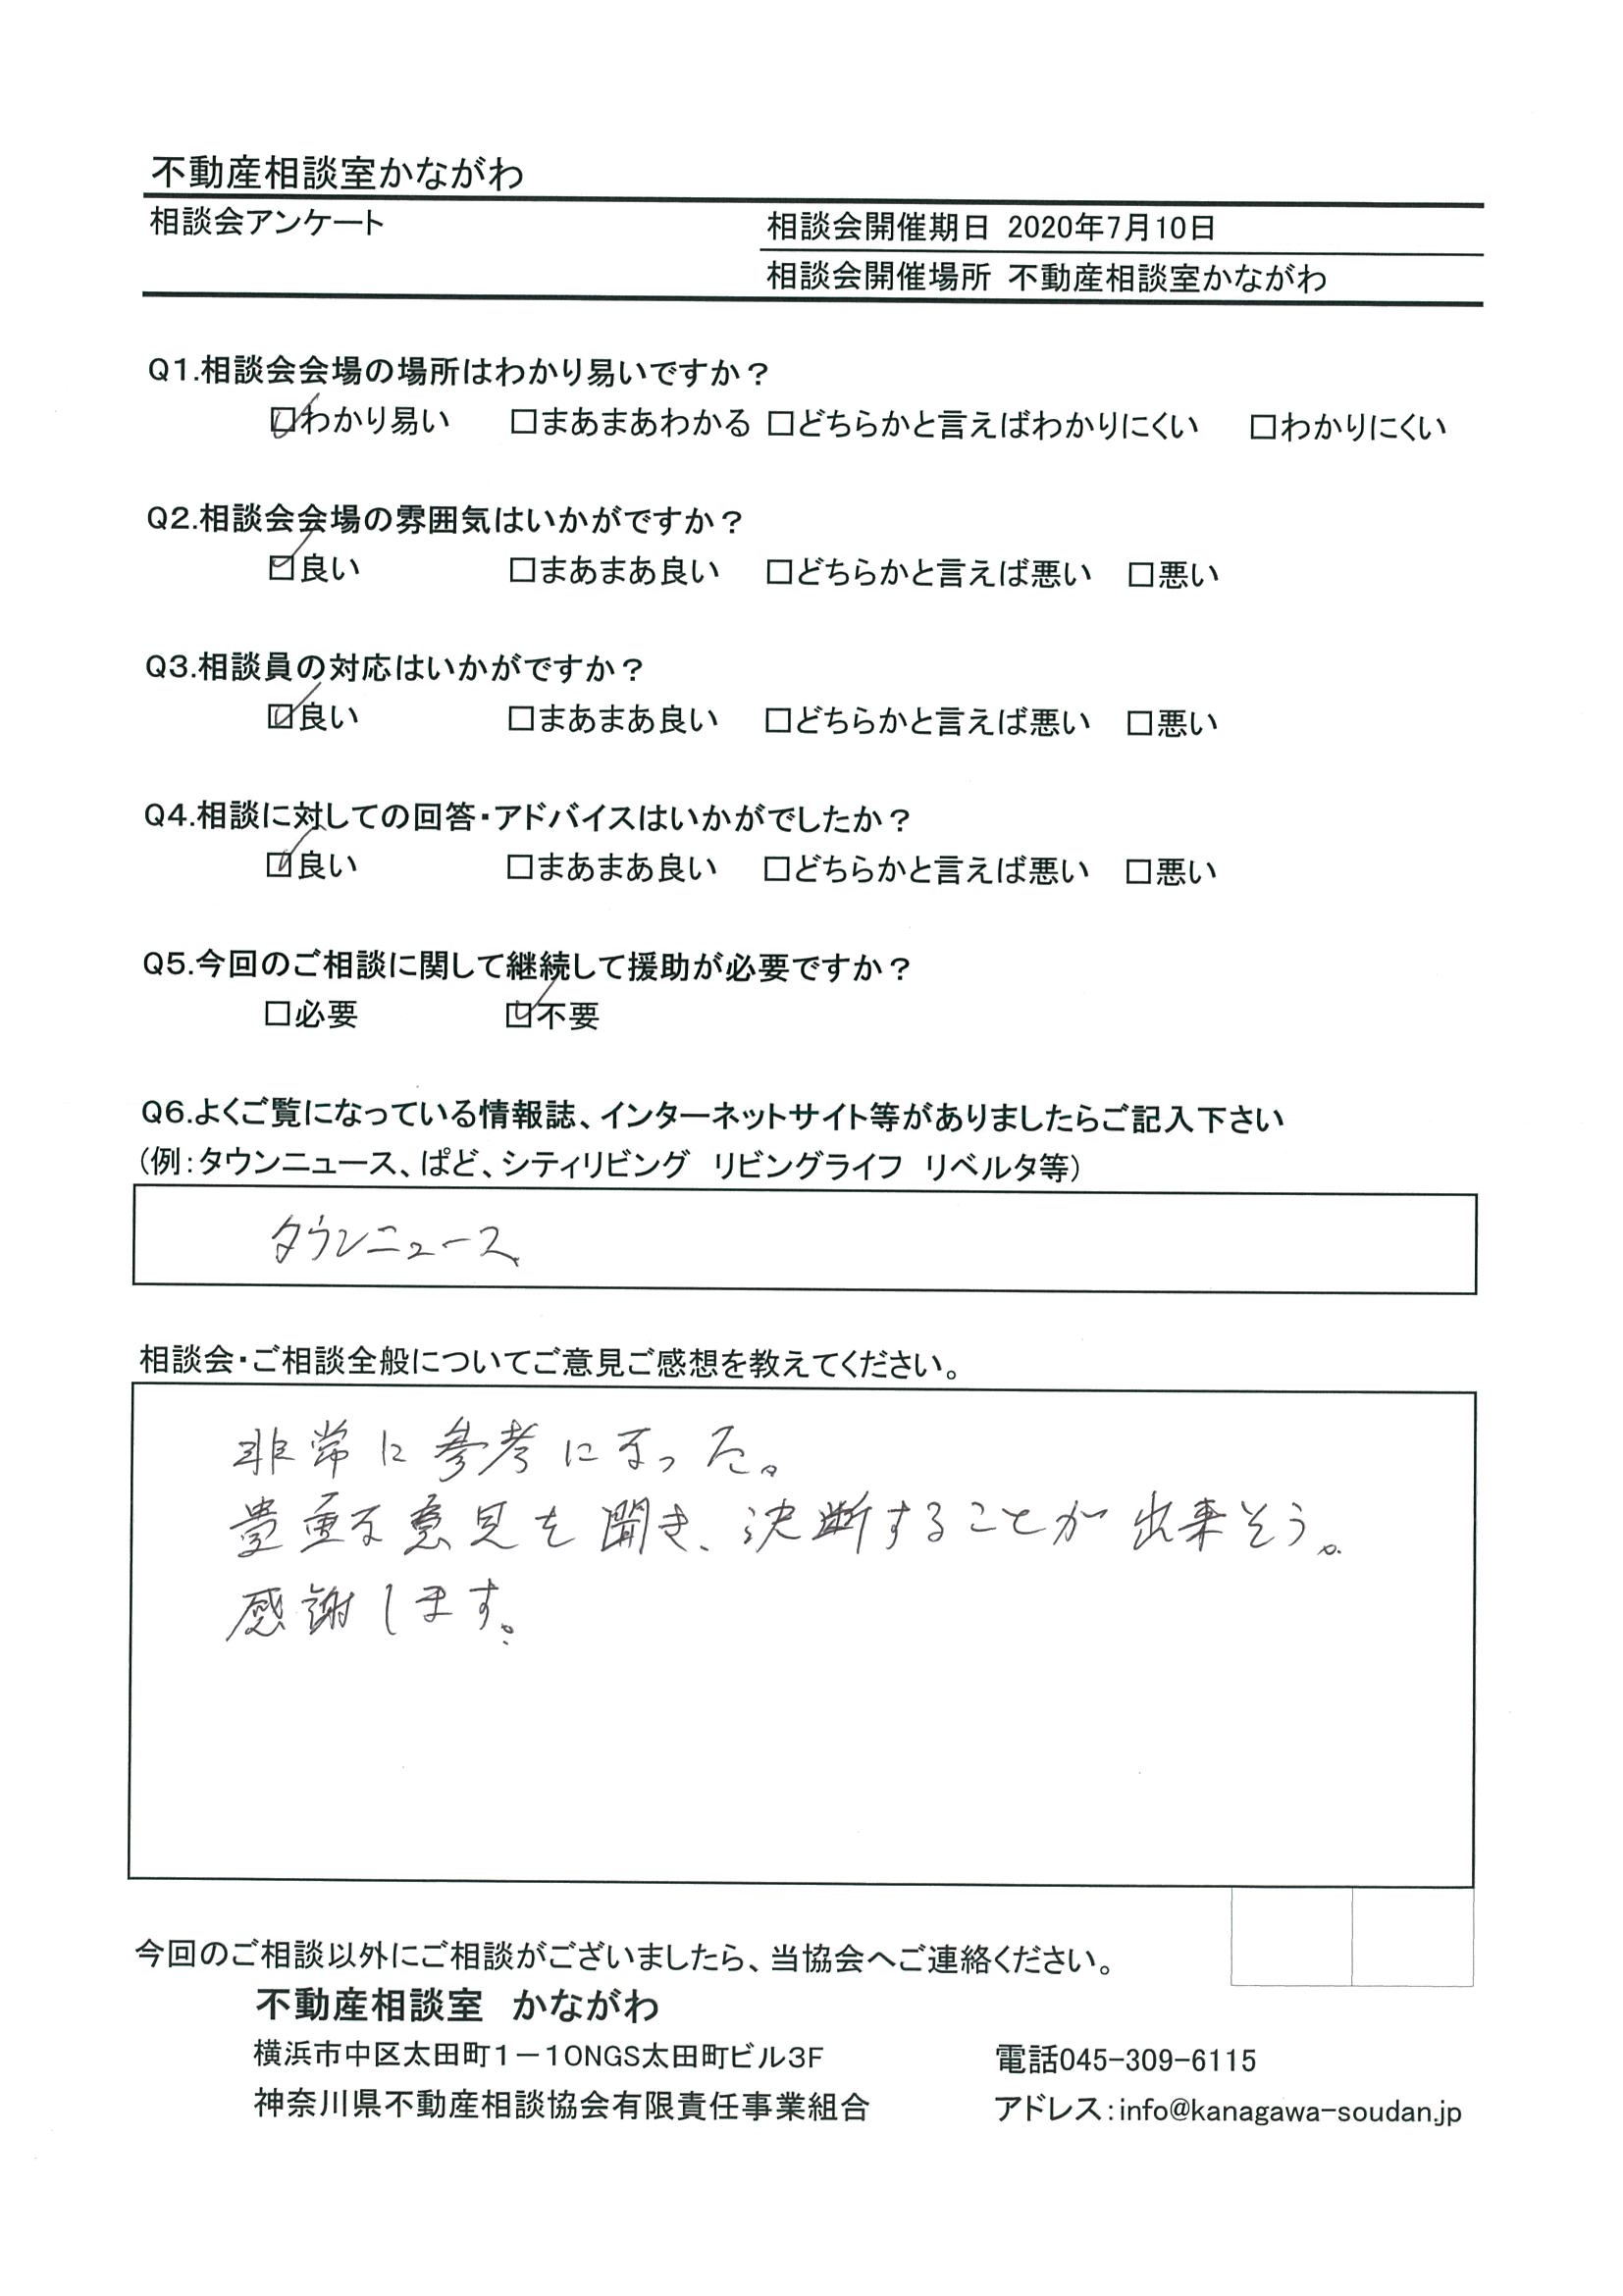 不動産相談室かながわ
相談会アンケート
相談会開催期日 2020年7月10日
相談会開催場所 不動産相談室かながわ
Q1.相談会会場の場所はわかり易いですか？
☑わかり易い □まあまあわかる □どちらかと言えばわかりにくい □わかりにくい
Q2.相談会会場の雰囲気はいかがですか？
☑良い □まあまあ良い □どちらかと言えば悪い □悪い
Q3.相談員の対応はいかがですか？
☑良い □まあまあ良い □どちらかと言えば悪い □悪い
Q4.相談に対しての回答・アドバイスはいかがでしたか？
☑良い □まあまあ良い □どちらかと言えば悪い □悪い
Q5.今回のご相談に関して継続して援助が必要ですか？
□必要 ☑不要
Q6.よくご覧になっている情報誌、インターネットサイト等がありましたらご記入下さい
(例：タウンニュース、ぱど、シティリビング リビングライフ リベルタ等)
タウンニュース
相談会・ご相談全般についてご意見ご感想を教えてください。
非常に参考になった。
貴重な意見を聞き、決断することが出来そう。
感謝します。
今回のご相談以外にご相談がございましたら、当協会へご連絡ください。
不動産相談室 かながわ
横浜市中区太田町１－１０NGS太田町ビル３F 電話045-309-6115
神奈川県不動産相談協会有限責任事業組合 アドレス：info@kanagawa-soudan.jp